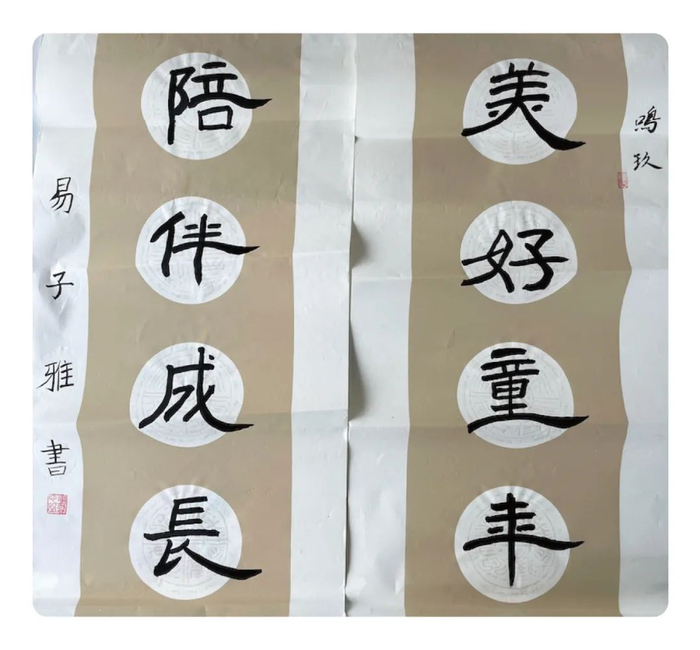 鳴玖
美好童年
陪伴成長
易子雅書